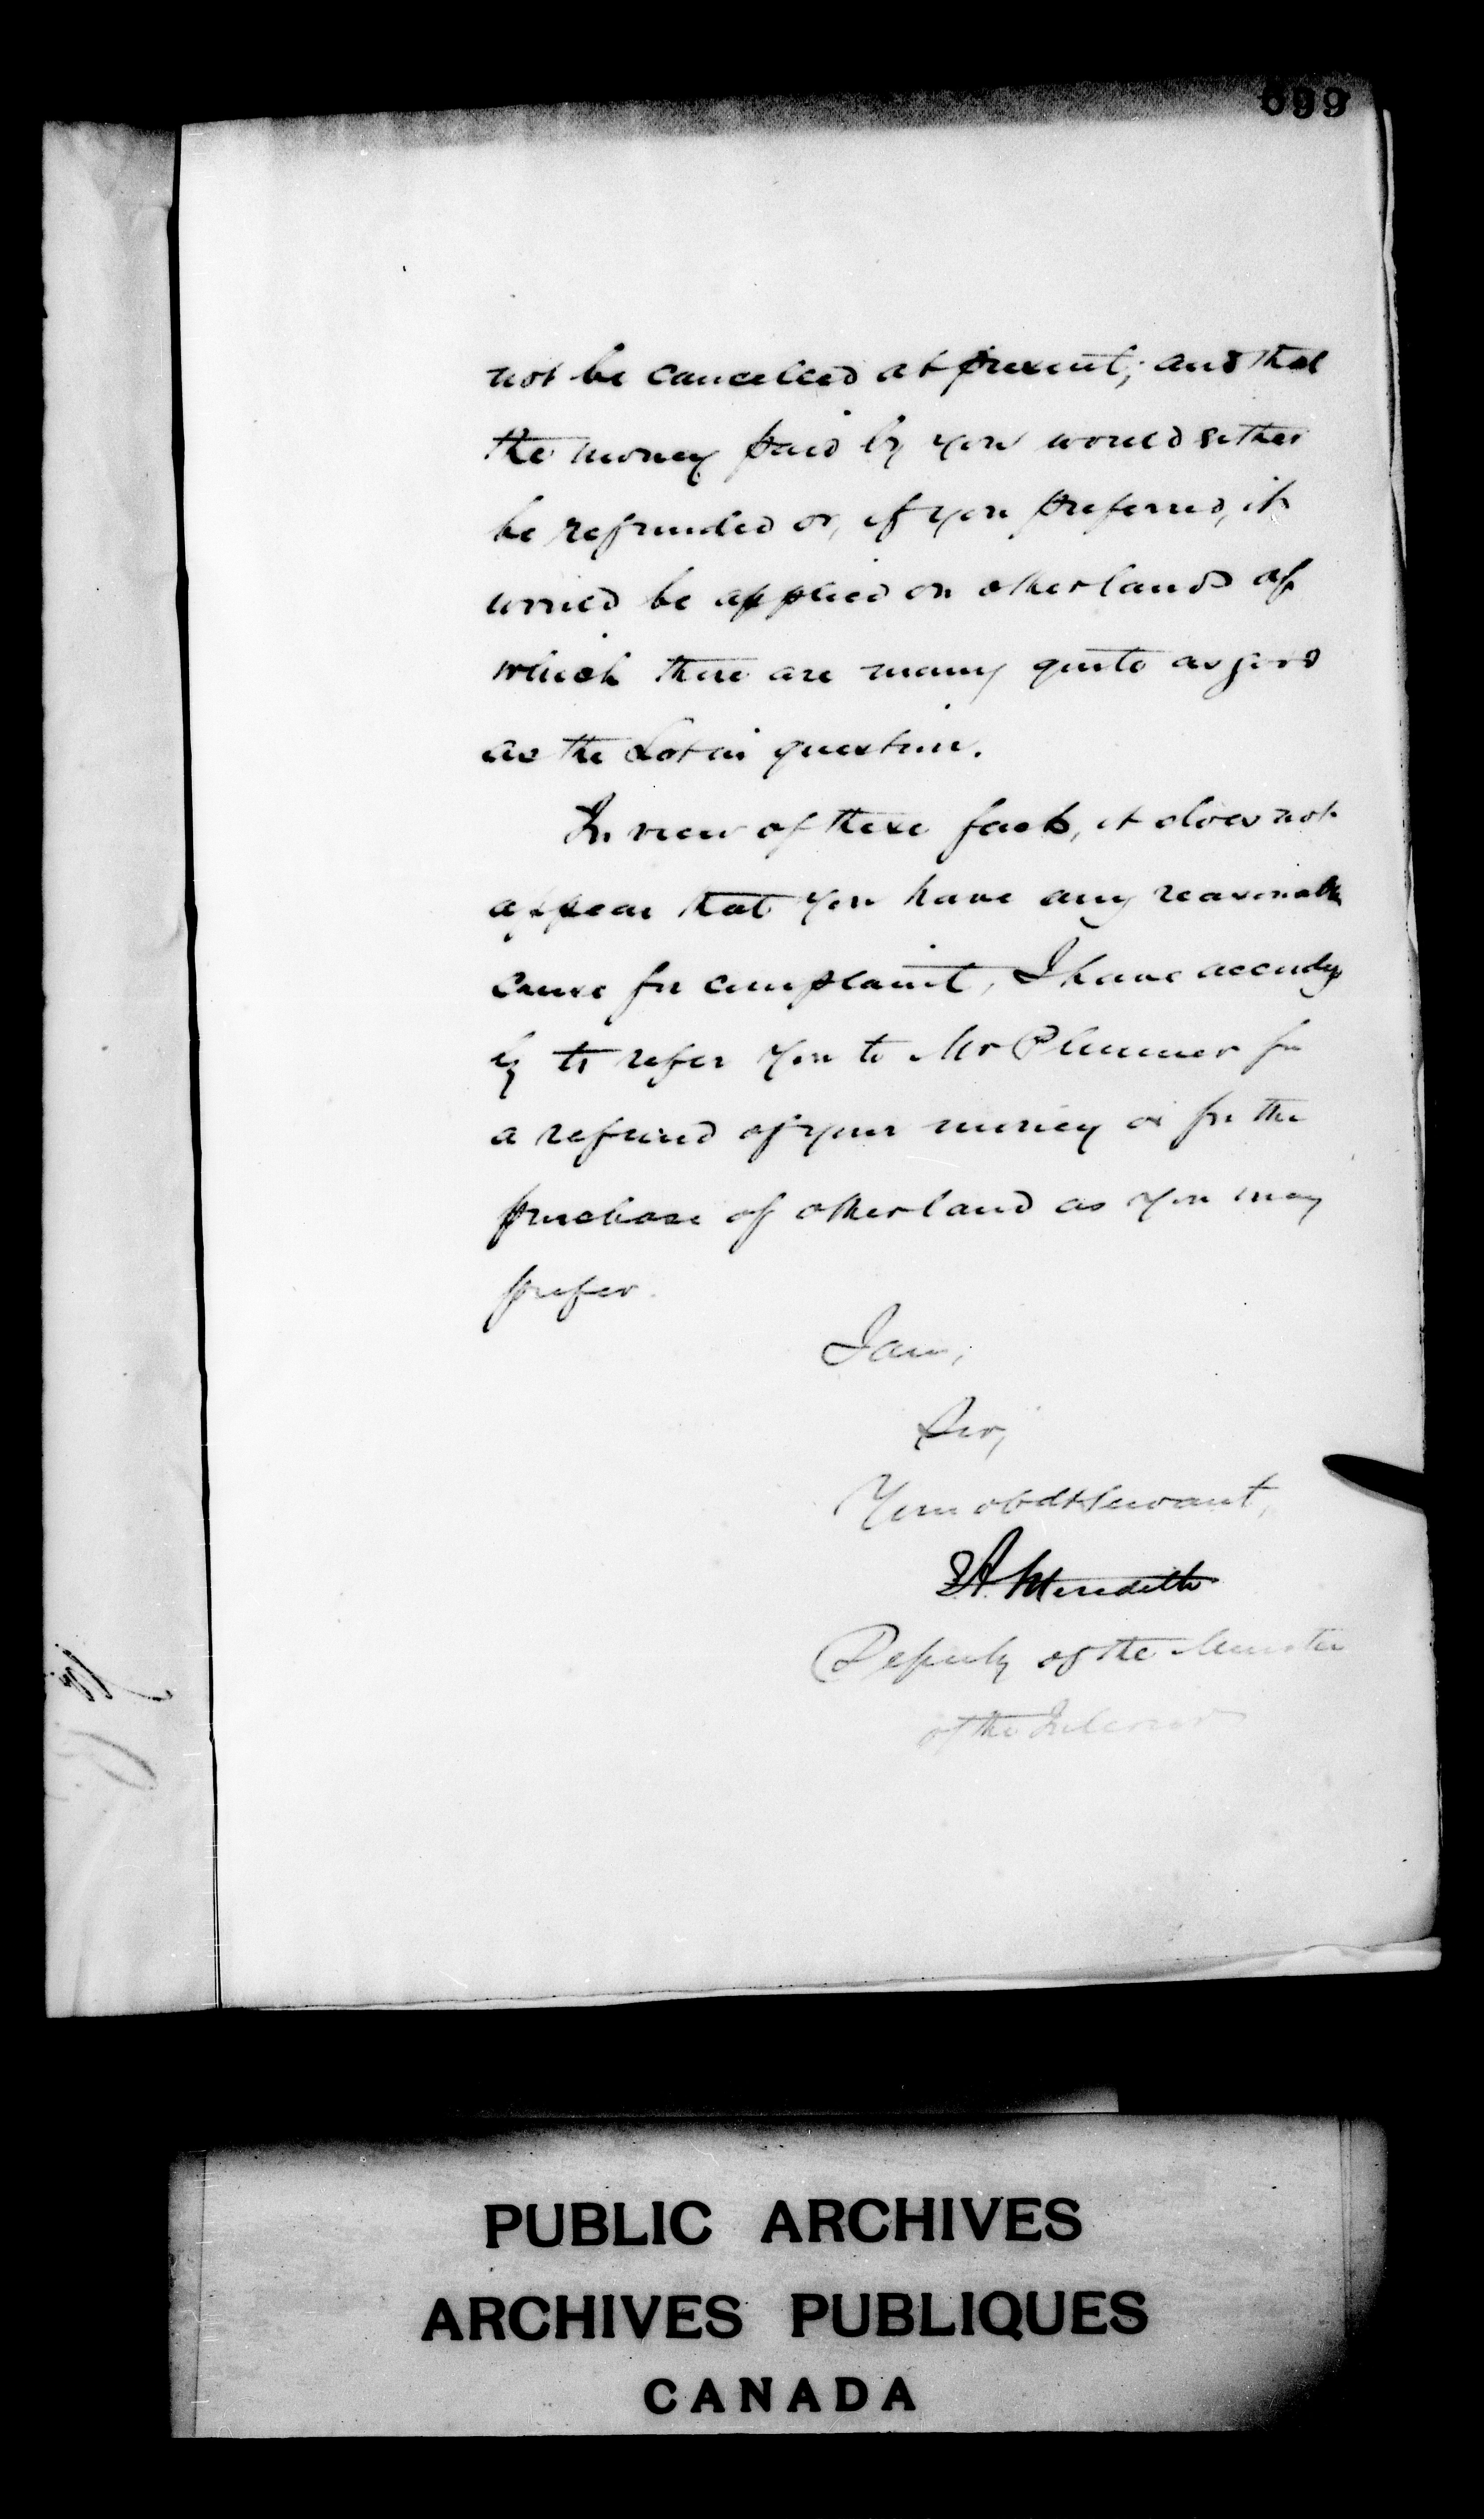 699
not be cancelled at present; and that
the money paid by you would either
be refunded or, if you preferred, it
would be applied on other lands of
which there are many quite as good
as the Lot in question.
In view of these facts, it does not
appear that you have any reasonable
cause for complaint, I have accordg
ly to refer you to Mr Plummer for
a refund of your money or for the
purchase of other land as you may
prefer.
I am,
Sir,
Your obdt Servant,
EA. Meredith
Deputy of the Minister
of the Interior
PUBLIC ARCHIVES
ARCHIVES PUBLIQUES
CANADA